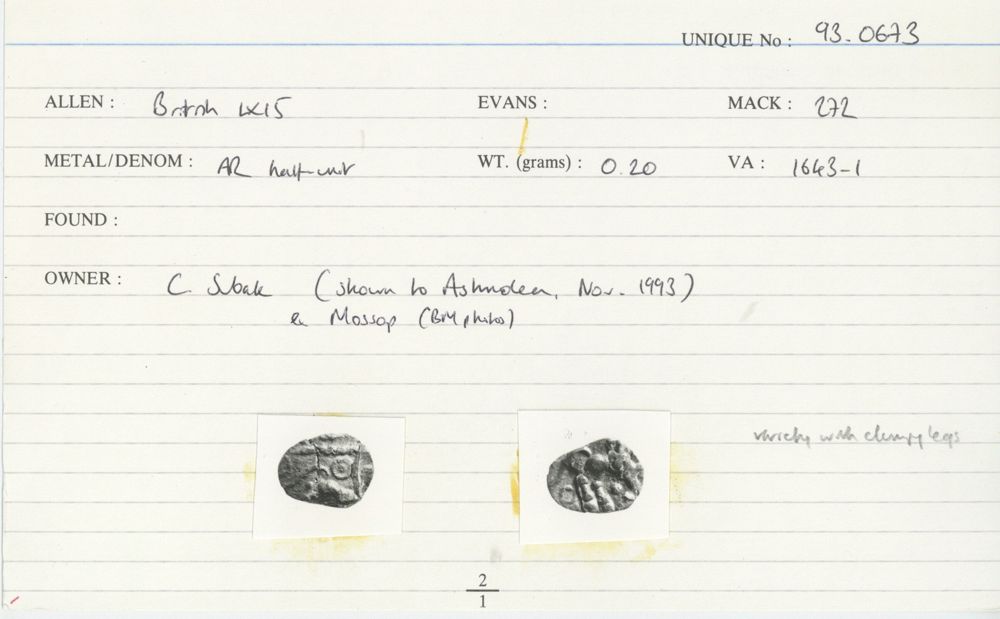 UNIQUE No : 93.0673
ALLEN : British LX15 EVANS : MACK : 272
METAL/DENOM : AR half-unit WT. (grams) : 0.20 VA : 1643-1
FOUND :
OWNER : C. Subak (shown to Ashmolean, Nov. 1993)
ex Mossop (BM photos)
variety with clumpy legs
2
1